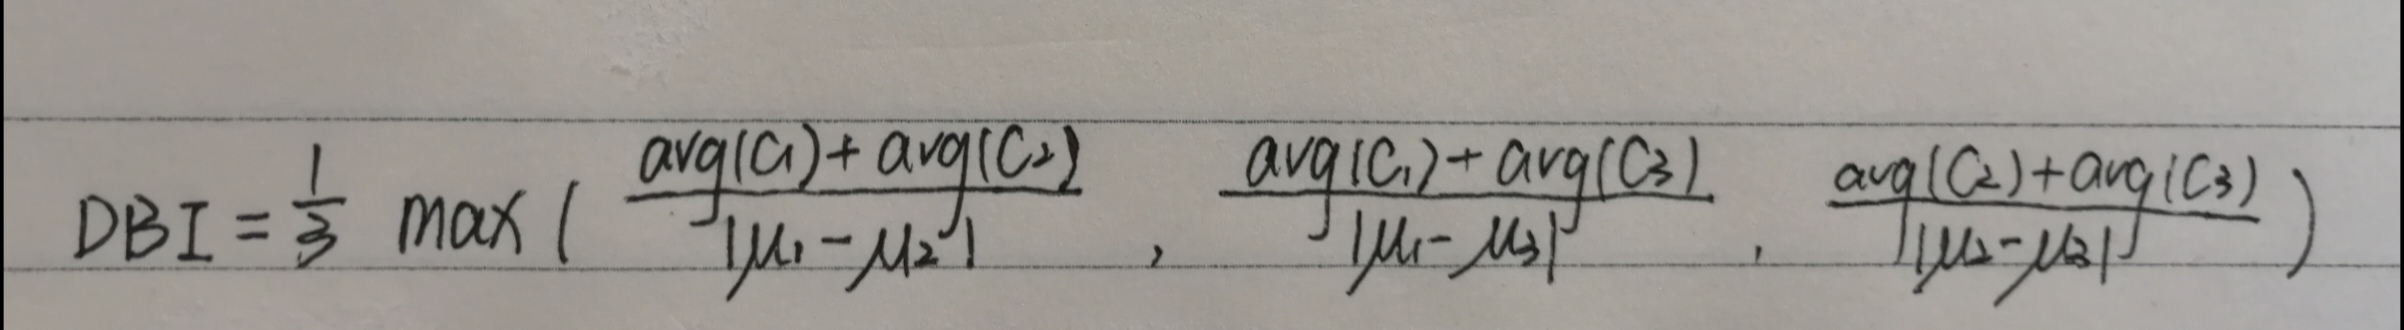 DBI = \frac{1}{3} max ( \frac{avg(C_1) + avg(C_2)}{|\mu_1 - \mu_2|} , \frac{avg(C_1) + avg(C_3)}{|\mu_1 - \mu_3|} , \frac{avg(C_2) + avg(C_3)}{|\mu_2 - \mu_3|} )